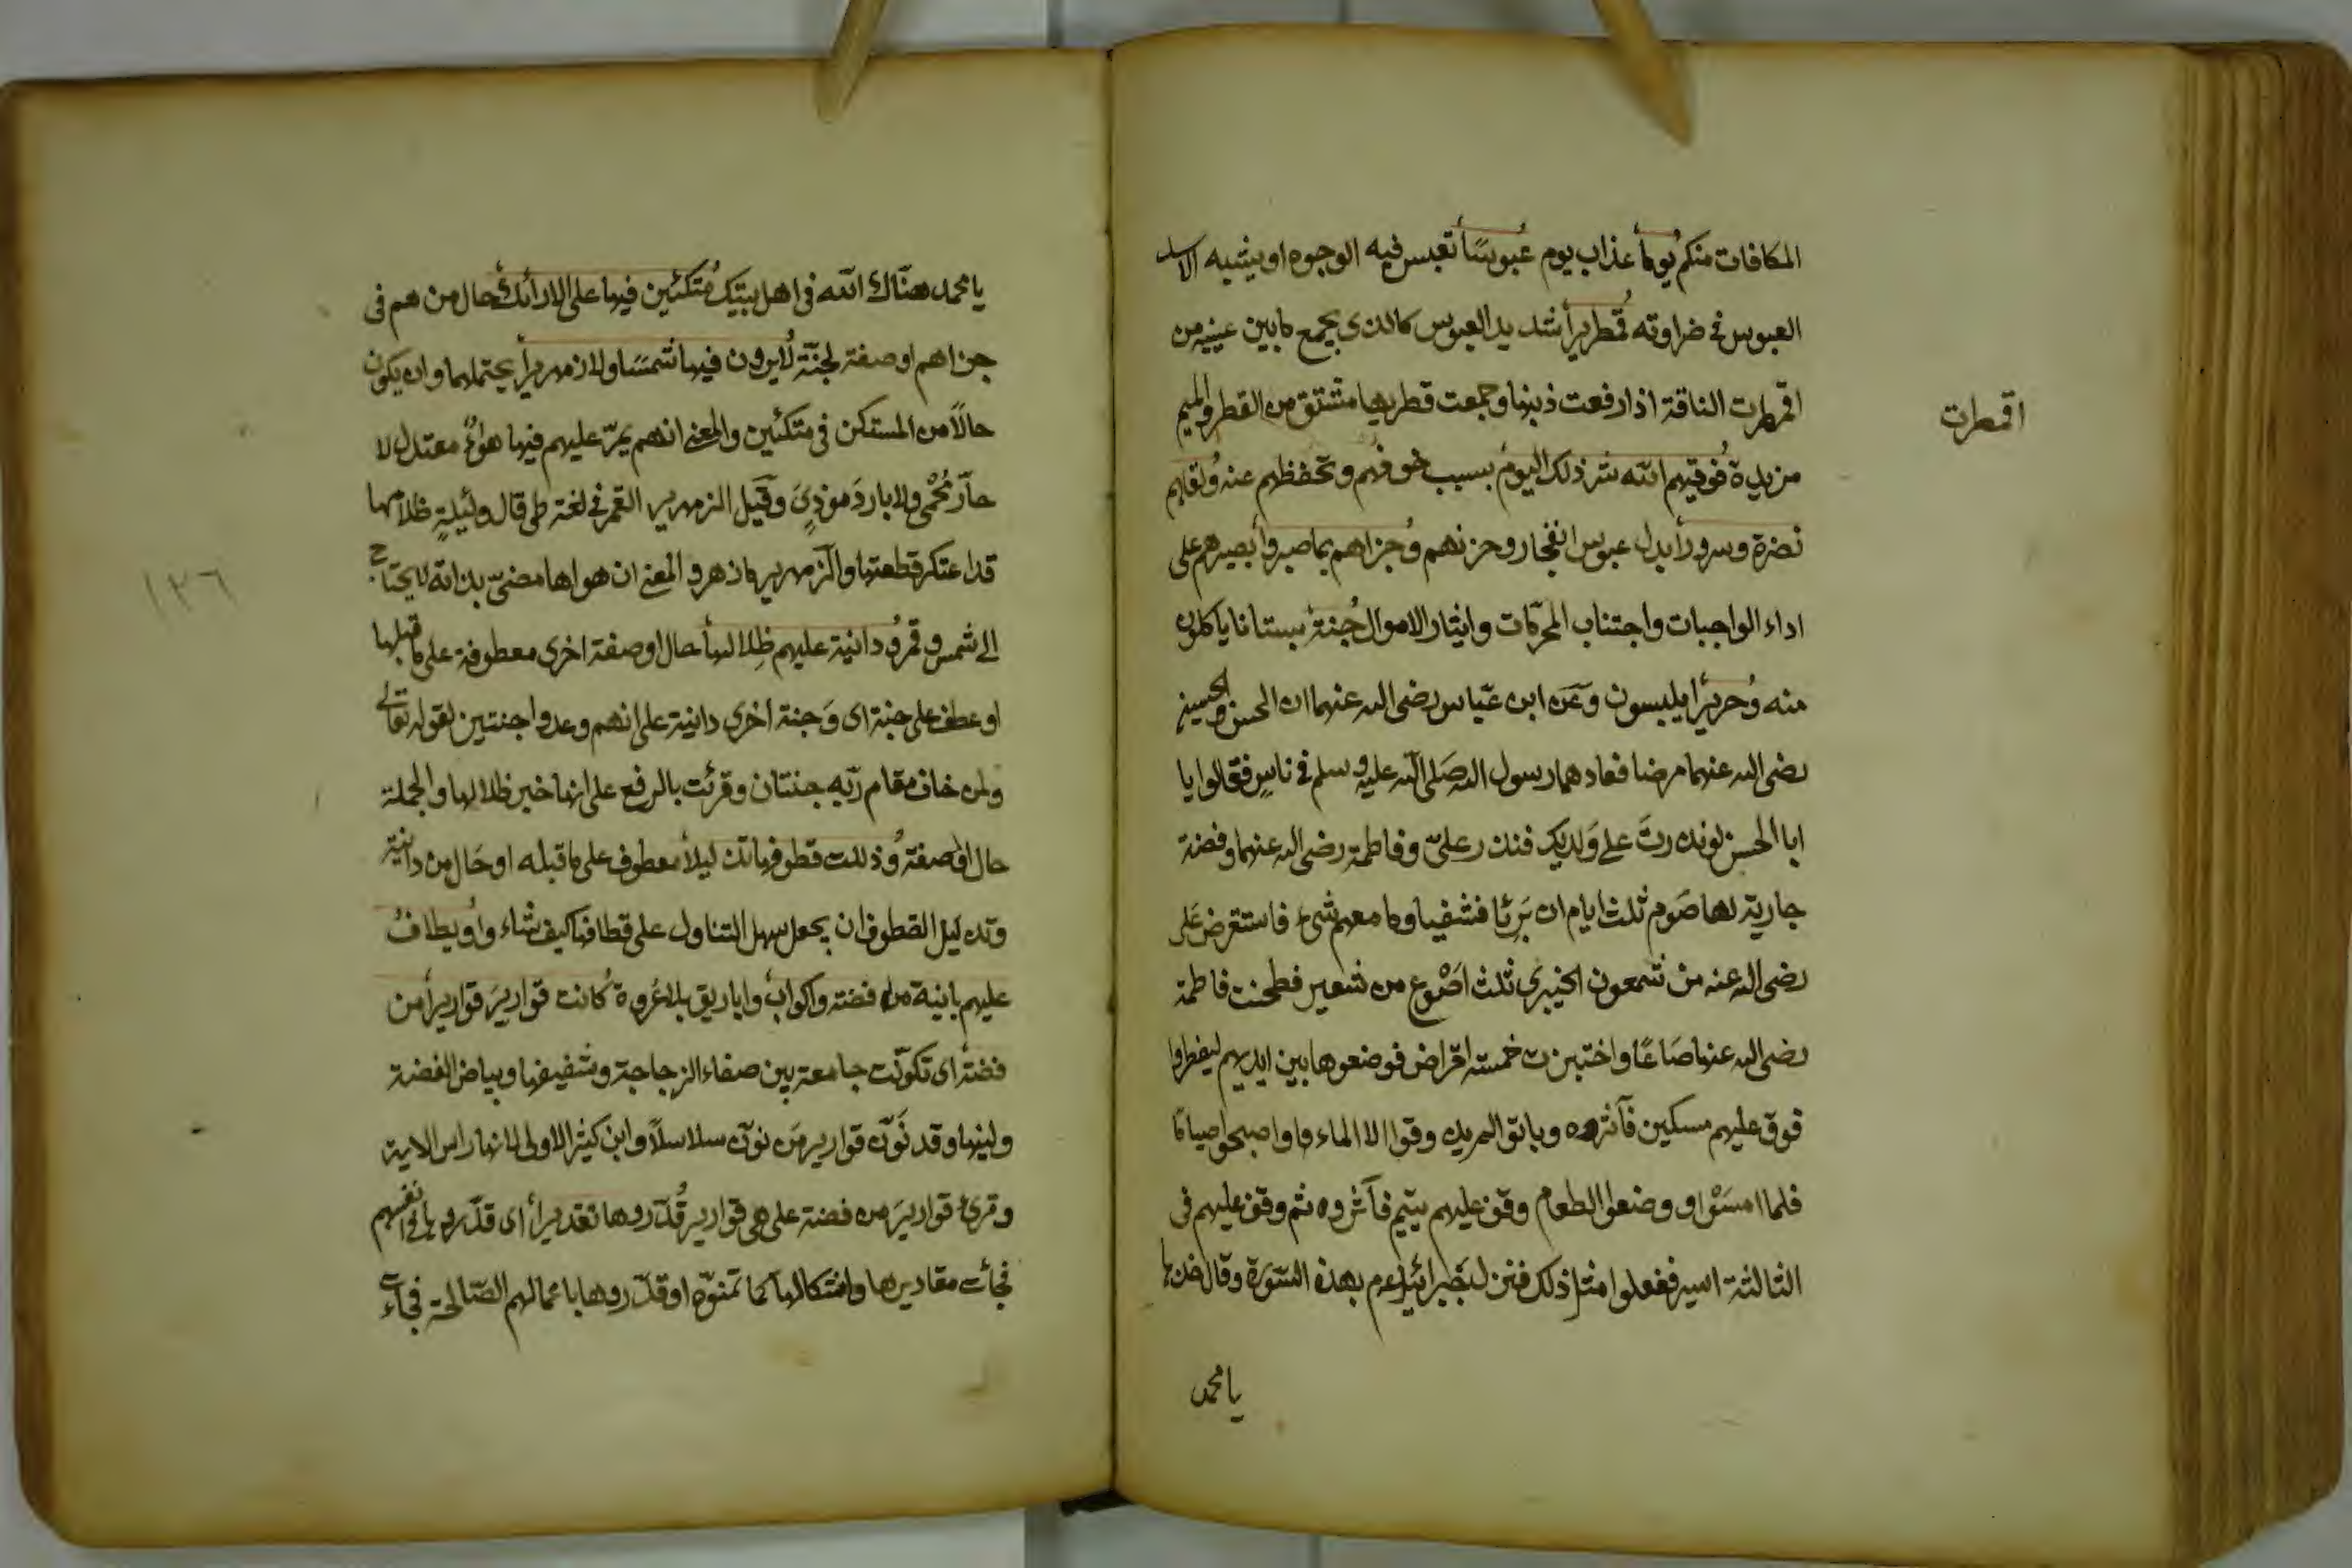 المكافات منكم يوما عذاب يوم عبوسًا تعبس فيه الوجوه او يشبه الاسد
العبوس في ضراوته قمطريرا شديد العبوس كالذي يجمع ما بين عينيه من
اقمطرت الناقة اذا رفعت ذنبها وجمعت قطريها مشتق من القطر والميم
اقمطرت
مزيدة فوقيهم الله شر ذلك اليوم بسبب خوفهم وتحفظهم عنه ولقاهم
نضرة وسرورا بدل عبوس الفجار وحزنهم وجزاهم بما صبروا بصبرهم على
اداء الواجبات واجتناب المحرّمات وايثار الاموال جنة بستانا ياكلون
منه وحريرا يلبسون وعن ابن عبّاس رضى الله عنهما ان الحسن والحسين
رضى الله عنهما مرضا فعادهما رسول الله صلى الله عليه وسلم في ناسٍ فقالوا يا
ابا الحسن لو نذرت على ولديك فنذر علىّ وفاطمة رضى الله عنهما وفضة
جارية لها صوم ثلث ايام ان برئا فشفيا وما معهم شئ فاستقرض على
رضى الله عنه من شمعون الخيبرى ثلث اصْوع من شعير فطحنت فاطمة
رضى الله عنها صَاعًا واختبزت خمسة اقراص فوضعوها بين ايديهم ليفطروا
فوقف عليهم مسكين فآثروه وباتوا لم يذوقوا الا الماء واصبحوا صياما
فلما امسَوْا ووضعوا الطعام وقف عليهم يتيم فآثروه ثم وقف عليهم فى
الثالثة اسير ففعلوا مثل ذلك فنزل جبرائيل عم بهذه السّورة وقال خذها
يا محمد
يا محمد هنّاك الله فى اهل بيتك متكئين فيها على الارائك حال من هم فى
جزاهم او صفة لجنّة لا يرون فيها شمسًا ولا زمهريرا يحتملهما وان يكون
حالاً من المستكن فى متكئين والمعنى انهم يمرّ عليهم فيها هواءٌ معتدل لا
حارّ مُحْمى ولا بارد موذٍىَ وقيل الزمهرير القمر في لغة طى قال وليلةٍ ظلامها
قد اعتكر قطعتها والزمهرير ما زهر والمعنى ان هواها مضىّ بذاته لا يحتاج
الى شمس وقمر ودانية عليهم ظلالها حال او صفة اخرى معطوفة على ما قبلها
او عطف على جنة اى وَجنة اخرى دانية على انهم وعدوا جنتين لقوله تعالى
ولمن خاف مقام ربّه جنتان وقرئت بالرفع على انها خبر ظلالها والجملة
حال او صفة وذللت قطوفها تذليلا معطوف على ما قبله او حَال من دانية
وتذليل القطوف ان يجعل سهل التناول على قطافها كيف شاء واو يطاف
عليهم بانية من فضة واكواب واباريق بلا عُروة كانت قواريرَ قواريرا من
فضة اى تكوّنت جامعة بين صفاء الزجاجة وشفيفها وبياض الفضة
ولينها وقد نَوّن قوارير مَن نوّن سلاسلاً وابن كثير الاولى لانها راس الاية
وقرئ قواريرَ من فضة على هى قوارير قدّروها تقديرا اى قدّروها فى انفسهم
فجأت مقاديرها واشكالها كما تمنوّه او قدّروها باعمالهم الصّالحة فجاءت
١٣٦